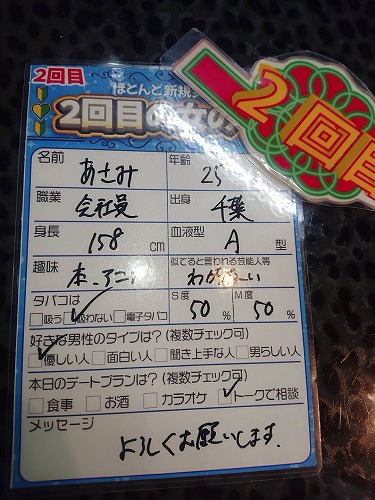 2回目
ほとんど新規
2回目の女の
2回目
名前 あさみ 年齢 25
職業 会社員 出身 千葉
身長 158 cm 血液型 A 型
趣味 本、アニメ 似てると言われる芸能人等
タバコは S度 M度
□吸う ☑吸わない □電子タバコ 50 % 50 %
好きな男性のタイプは?(複数チェック可)
☑優しい人 □面白い人 □聞き上手な人 □男らしい人
本日のデートプランは?(複数チェック可)
□食事 □お酒 □カラオケ ☑トークで相談
メッセージ
よろしくお願いします.